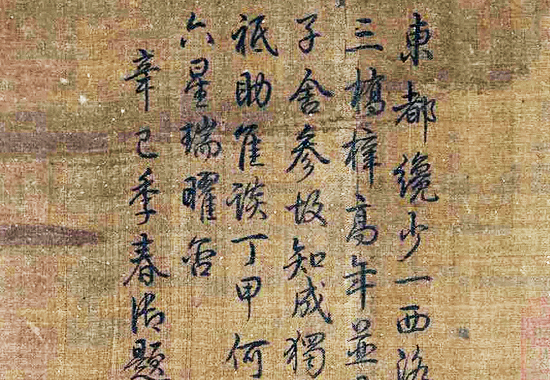 東都纔少一西洛
三橋梓高年並
子舍參故知成獨
祇助隹談丁甲何
六星瑞曜否
辛巳季春御題